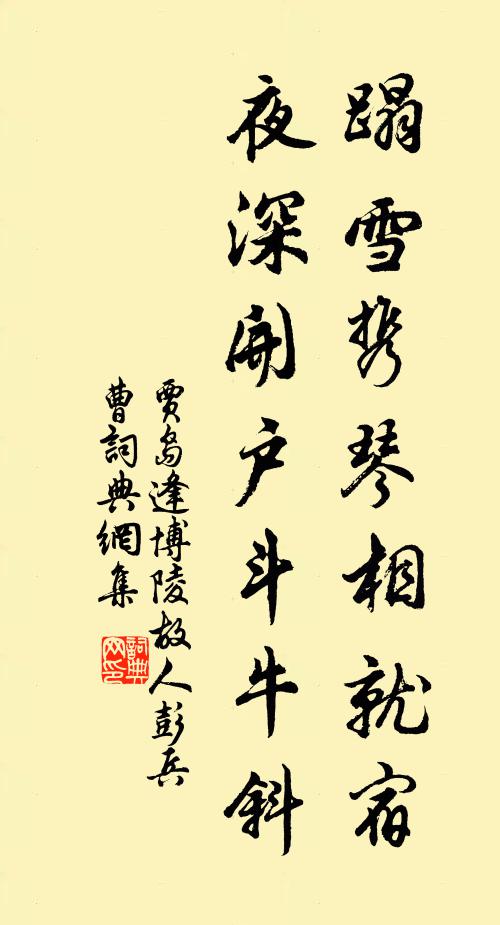 蹋雪携琴相就宿
夜深開户斗牛斜
賈島逢博陵故人彭兵
曹詞典網集
詞典網印